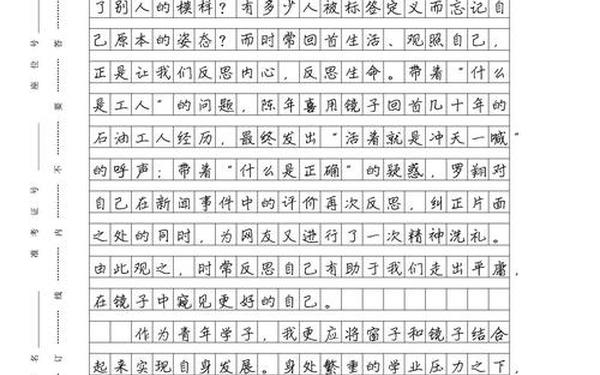 了别人的模样？有多少人被标签定义而忘记自
己原本的姿态？而时常回首生活、观照自己，
正是让我们反思内心，反思生命。带着“什么
是工人”的问题，陈年喜用镜子回首几十年的
石油工人经历，最终发出“活着就是冲天一喊”
的呼声；带着“什么是正确”的疑惑，罗翔对
自己在新闻事件中的评价再次反思，纠正片面
之处的同时，为网友又进行了一次精神洗礼。
由此观之，时常反思自己有助于我们走出平庸，
在镜子中窥见更好的自己。
作为青年学子，我更应将窗子和镜子结合
起来实现自身发展。身处繁重的学业压力之下，
座位号
准考证号
名
答
要
不
内
线
订